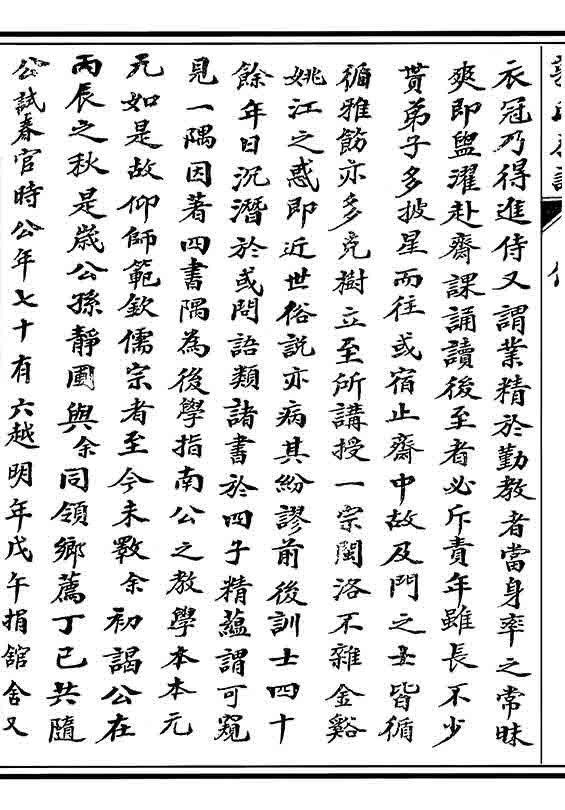 衣冠乃得進侍又謂業精於勤教者當身率之常昧
爽即盥濯赴齋課誦讀後至者必斥責年雖長不少
貰弟子多披星而往或宿止齋中故及門之士皆循
循雅飭亦多克樹立至所講授一宗閩洛不雜金谿
姚江之惑即近世俗說亦病其紛謬前後訓士四十
餘年日沉潛於或問語類諸書於四子精蘊謂可窺
見一隅因著四書隅為後學指南公之教學本本元
元如是故仰師範欽儒宗者至今未斁余初謁公在
丙辰之秋是歲公孫靜圃與余同領鄉薦丁巳共隨
公試春官時公年七十有六越明年戊午捐舘舍又